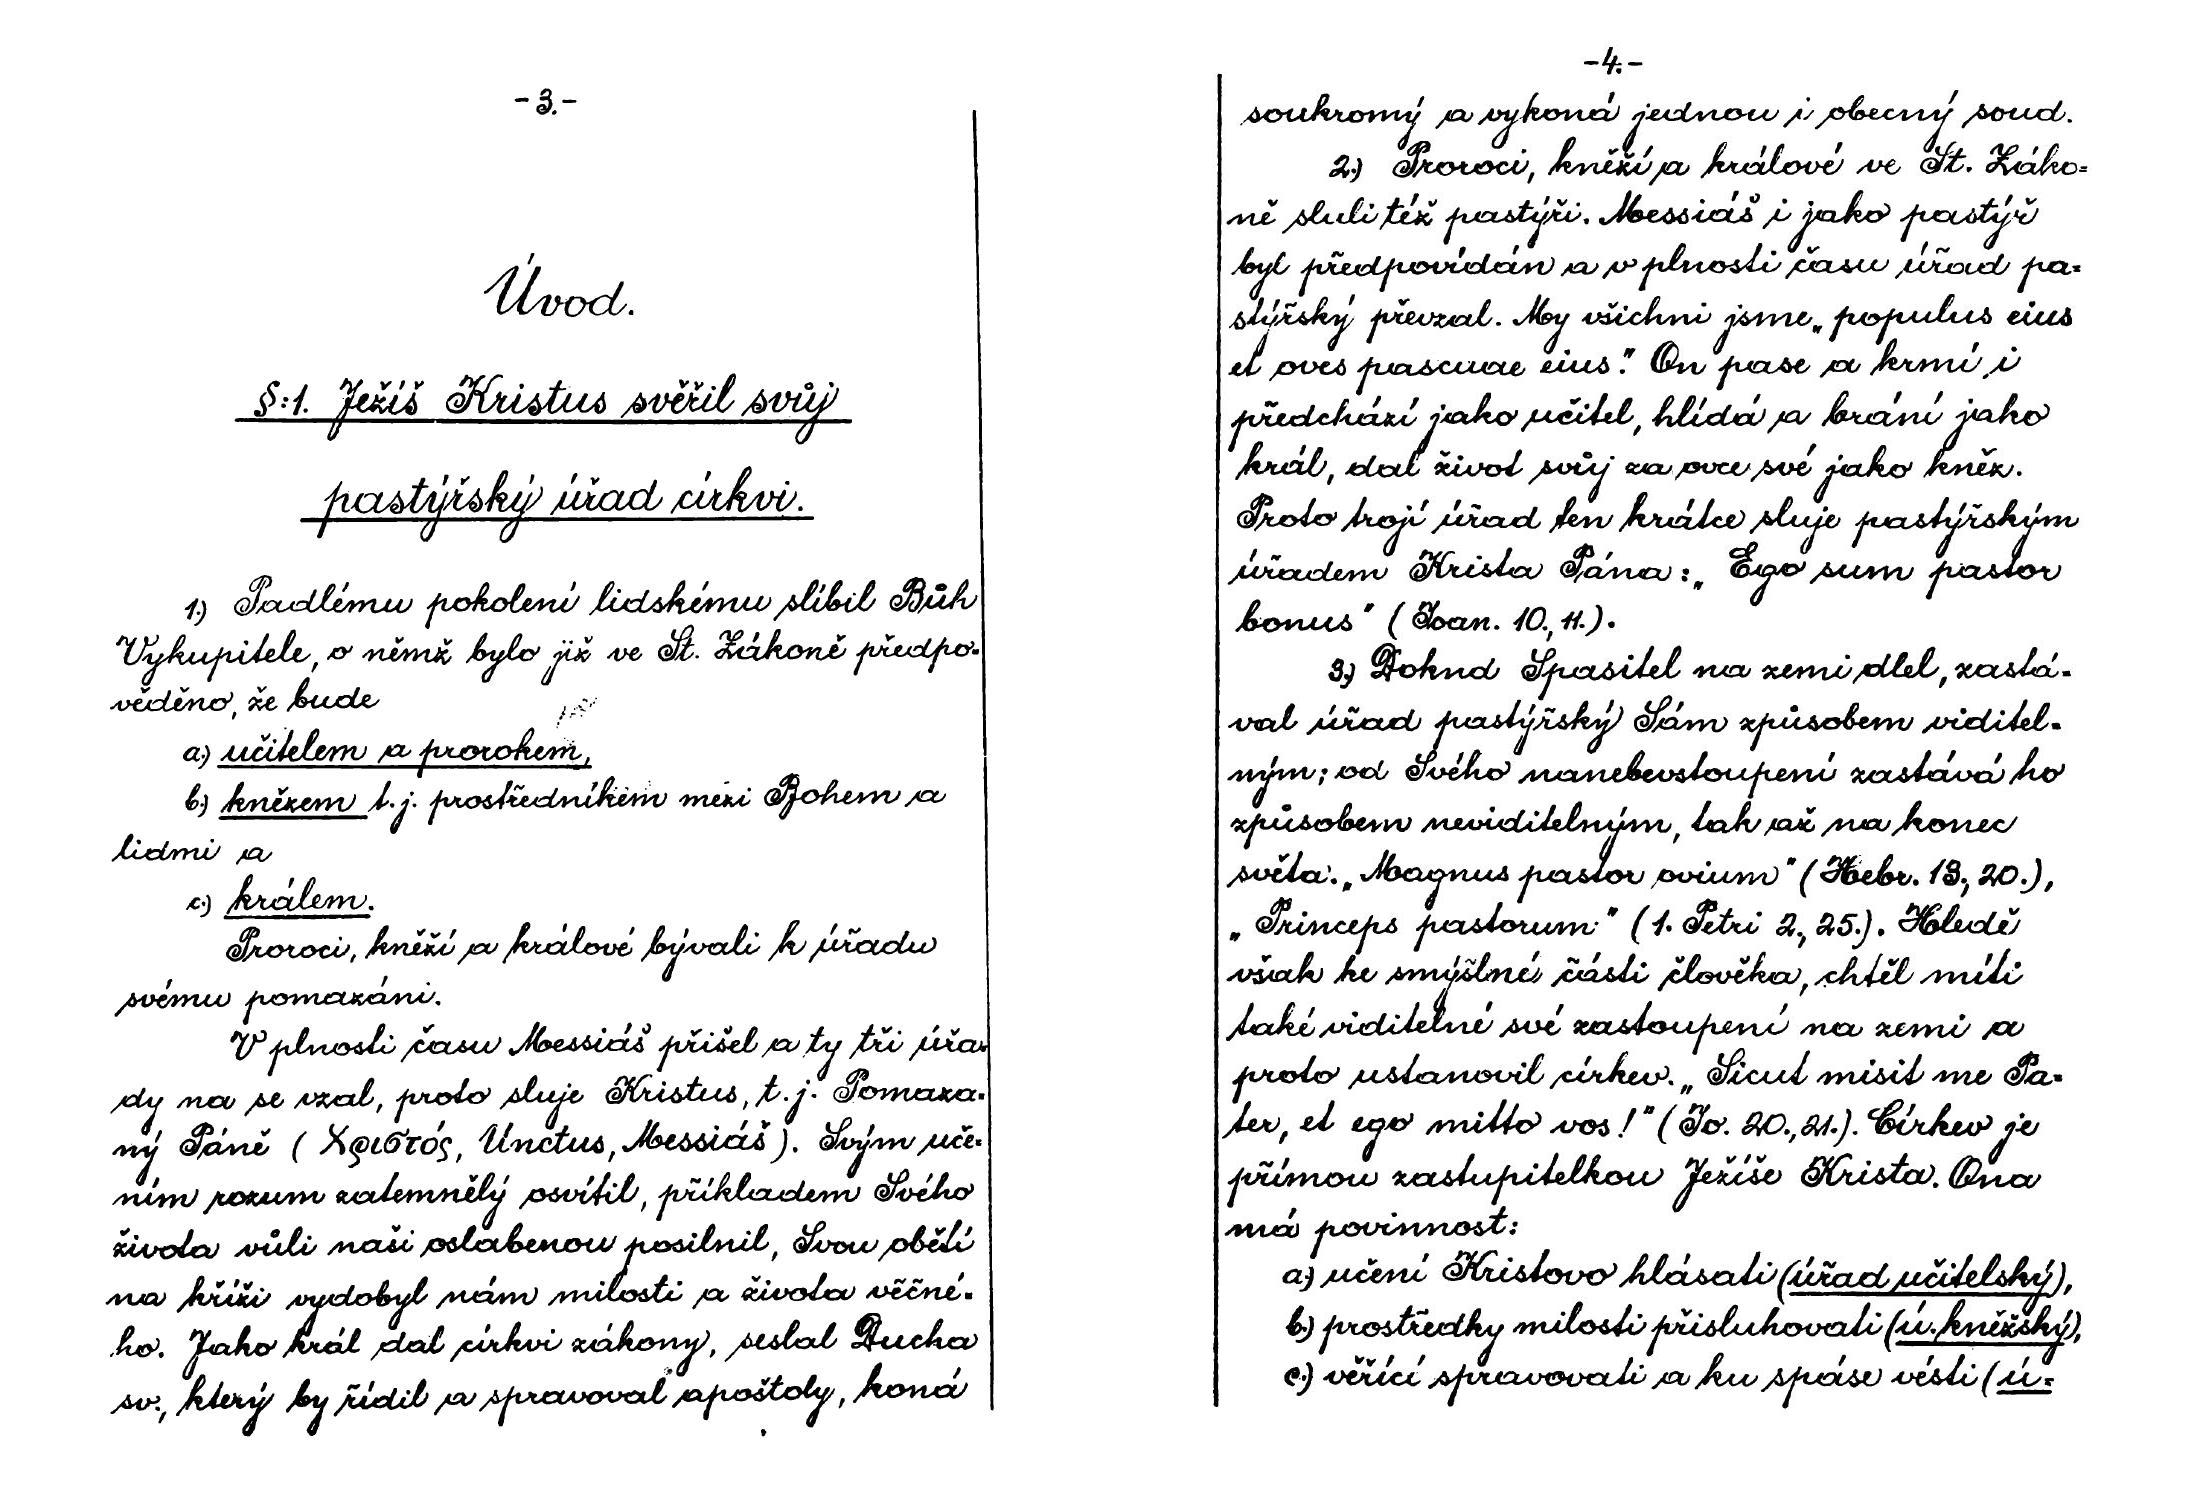 -3.-
Úvod.
§:1. Ježíš Kristus svěřil svůj
pastýřský úřad církvi.
1.) Padlému pokolení lidskému slíbil Bůh
Vykupitele, o němž bylo již ve St. Zákoně předpo=
věděno, že bude
a.) učitelem a prorokem,
b.) knězem t.j. prostředníkem mezi Bohem a
lidmi a
c.) králem.
Proroci, kněží a králové bývali k úřadu
svému pomazáni.
V plnosti času Messiáš přišel a ty tři úřa=
dy na se vzal, proto sluje Kristus, t.j. Pomaza=
ný Páně (Χριστός, Unctus, Messiáš). Svým uče=
ním rozum zatemnělý osvítil, příkladem Svého
života vůli naši oslabenou posilnil, Svou obětí
na kříži vydobyl nám milosti a života věčné=
ho. Jako král dal církvi zákony, seslal Ducha
sv., který by řídil a spravoval apoštoly, koná
-4.-
soukromý a vykoná jednou i obecný soud.
2.) Proroci, kněží a králové ve St. Záko=
ně sluli též pastýři. Messiáš i jako pastýř
byl předpovídán a v plnosti času úřad pa=
stýřský převzal. My všichni jsme „populus eius
et oves pascuae eius." On pase a krmí i
předchází jako učitel, hlídá a brání jako
král, dal život svůj za ovce své jako kněz.
Proto trojí úřad ten krátce sluje pastýřským
úřadem Krista Pána: „Ego sum pastor
bonus" (Joan. 10., 11.).
3.) Doknd Spasitel na zemi dlel, zastá=
val úřad pastýřský Sám způsobem viditel=
ným; od Svého nanebevstoupení zastává ho
způsobem neviditelným, tak až na konec
světa. „Magnus pastor ovium" (Hebr. 13., 20.),
„Princeps pastorum" (1. Petri 2., 25.). Hledě
však ke smyšlné části člověka, chtěl míti
také viditelné své zastoupení na zemi a
proto ustanovil církev. „Sicut misit me Pa=
ter, et ego mitto vos!" (Jo. 20., 21.). Církev je
přímou zastupitelkou Ježíše Krista. Ona
má povinnost:
a.) učení Kristovo hlásati (úřad učitelský),
b.) prostředky milosti přisluhovati (ú. kněžský),
c.) věřící spravovati a ku spáse vésti (ú=